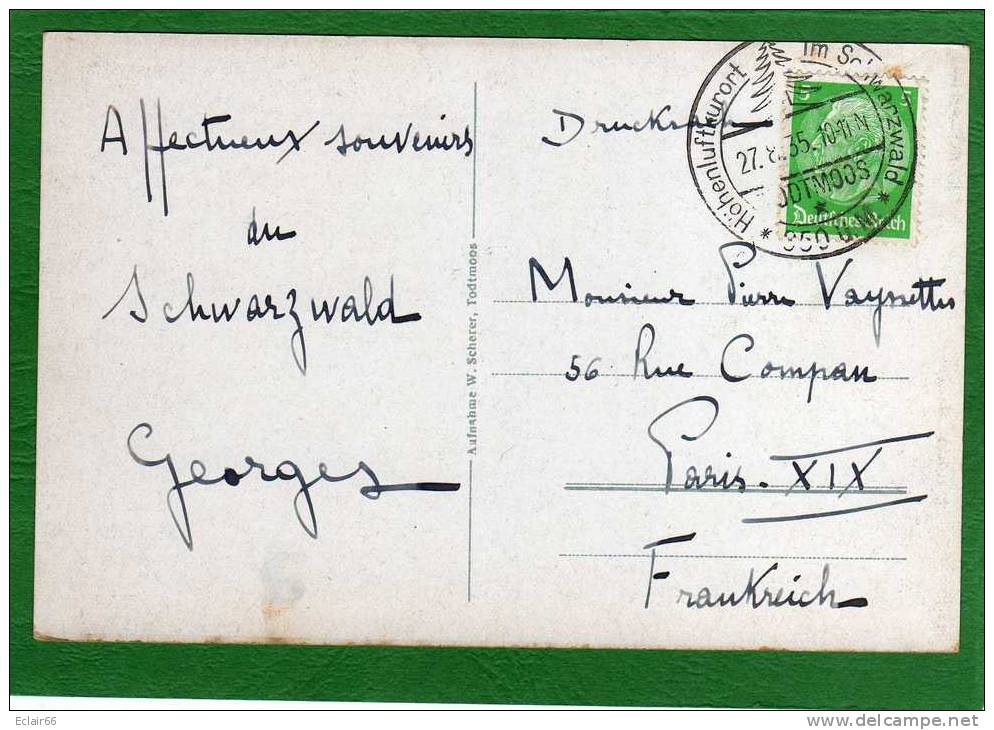 Affectueux souvenirs
du
Schwarzwald
Georges
Aufnahme W. Scherer, Todtmoos
Drucksache
Höhenluftkurort
im Schwarzwald
27.8.35.10-11 N
TODTMOOS
* 850 ü.M. *
5
5
Deutsches Reich
Monsieur Pierre Vayssettes
56 Rue Compans
Paris. XIX
Frankreich
Eclair66
www.delcampe.net